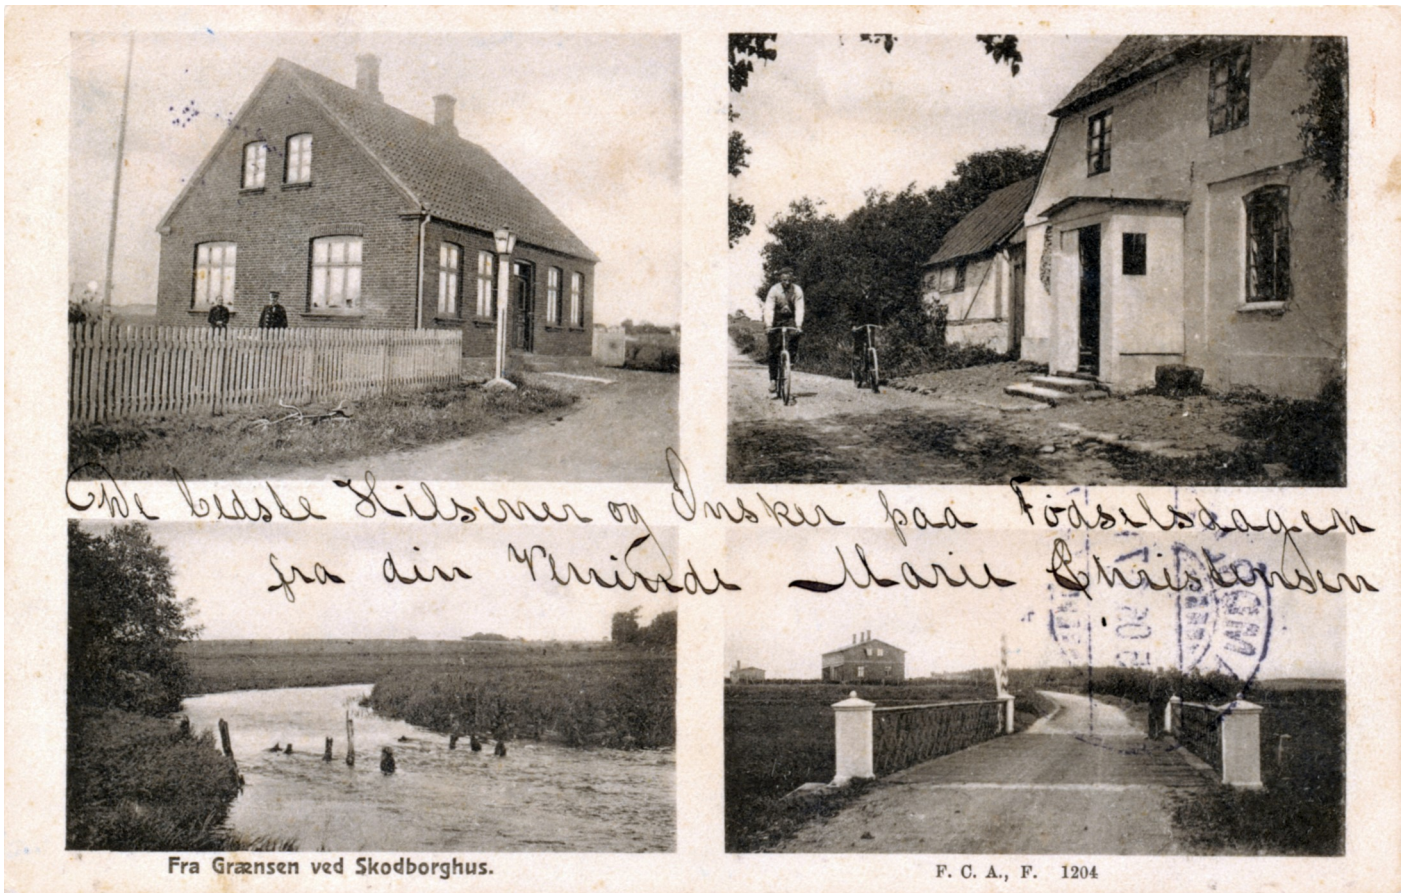 De bedste Hilsener og Ønsker paa Fødselsdagen
fra din Veninde Marie Christensen
Fra Grænsen ved Skodborghus.
F. C. A., F. 1204